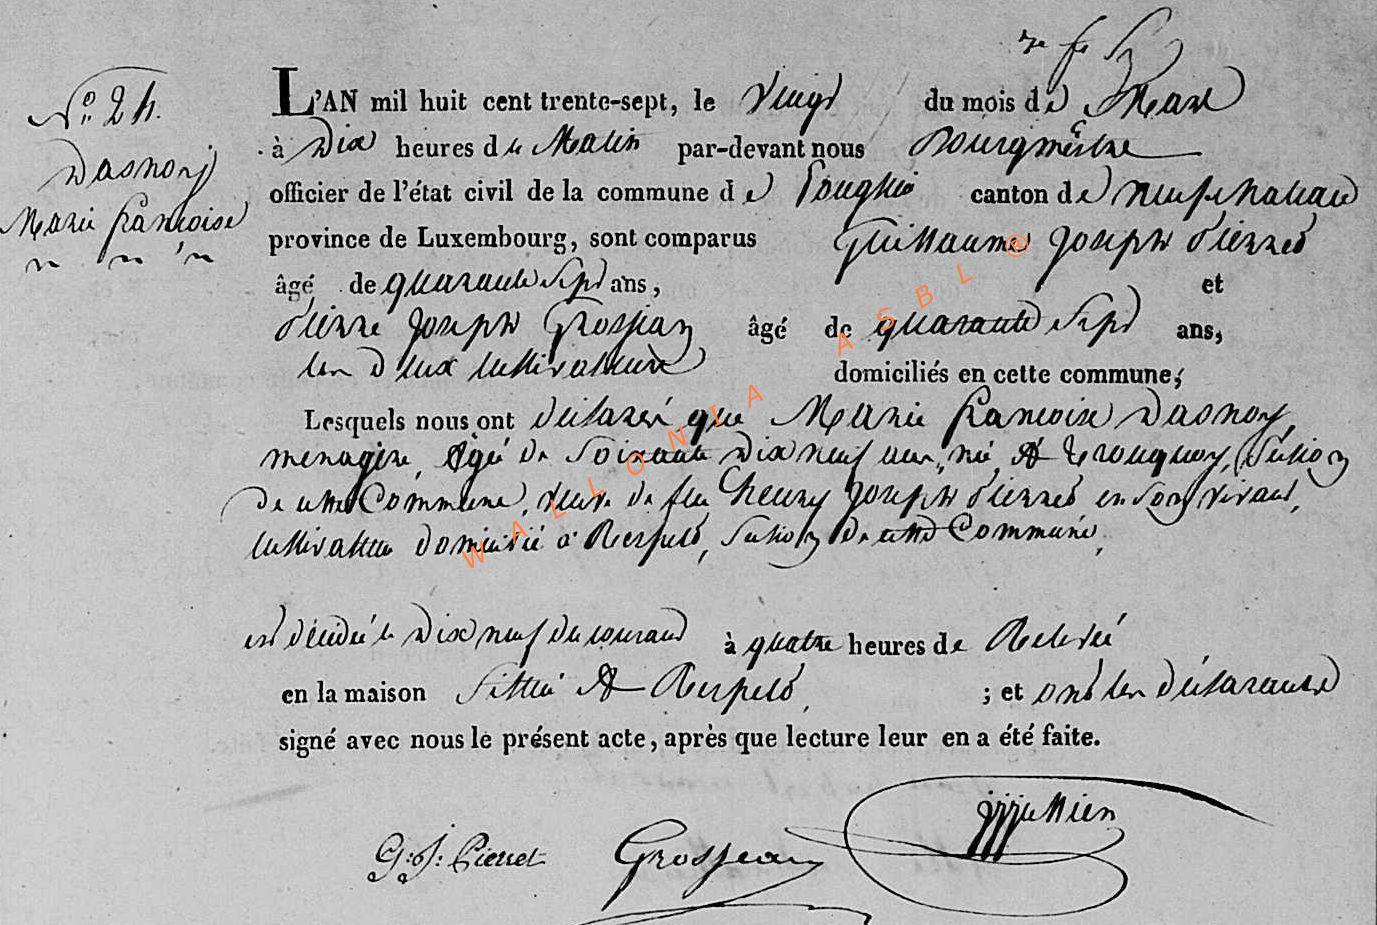 N.° 24.
Dasnoy
Marie françoise
L'AN mil huit cent trente-sept, le Vingt du mois de Mars
à Dix heures du Matin par-devant nous Bourgmestre
officier de l'état civil de la commune de Longlier canton de neufchateau
province de Luxembourg, sont comparus Guillaume Joseph Pierret
âgé de quarante Sept ans, et
Pierre Joseph Grosjean âgé de quarante Sept ans,
les deux cultivateurs domiciliés en cette commune;
Lesquels nous ont déclaré que Marie françoise Dasnoy
menagère, Agée de Soixante Dix neuf ans, née A tronquoy, Section
de cette Commune, veuve de feu henry Joseph Pierret en Son vivant,
cultivateur domicilié à Respelt, Section de cette Commune,
est décédée le Dix neuf du courant à quatre heures de Relevée
en la maison Sittuée A Respelt, ; et ont les déclarants
signé avec nous le présent acte, après que lecture leur en a été faite.
G: J: Pierret Grosjean
WALLONIA ASBL @